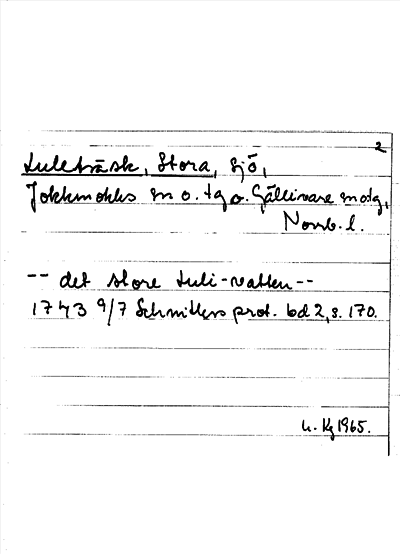 2
Luleträsk, Stora, sjö,
Jokkmokks sn o. tg o. Gällivare sn o tg,
Norrb. l.
-- det store Luli-vatten --
1743 9/7 Schnitlers prot. bd 2, s. 170.
h. Kg 1965.